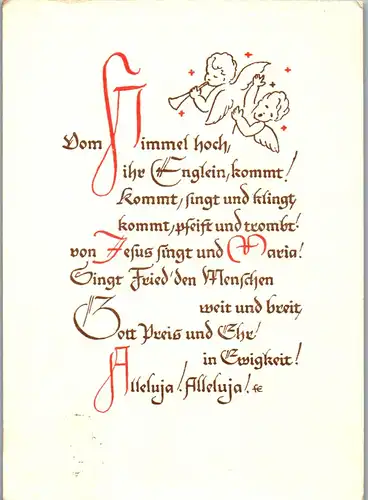 Vom Himmel hoch,
ihr Englein, kommt!
Kommt, singt und klingt,
kommt, pfeift und trombt!
von Jesus singt und Maria!
Singt Fried' den Menschen
weit und breit,
Gott Preis und Ehr'
in Ewigkeit!
Alleluja! Alleluja!